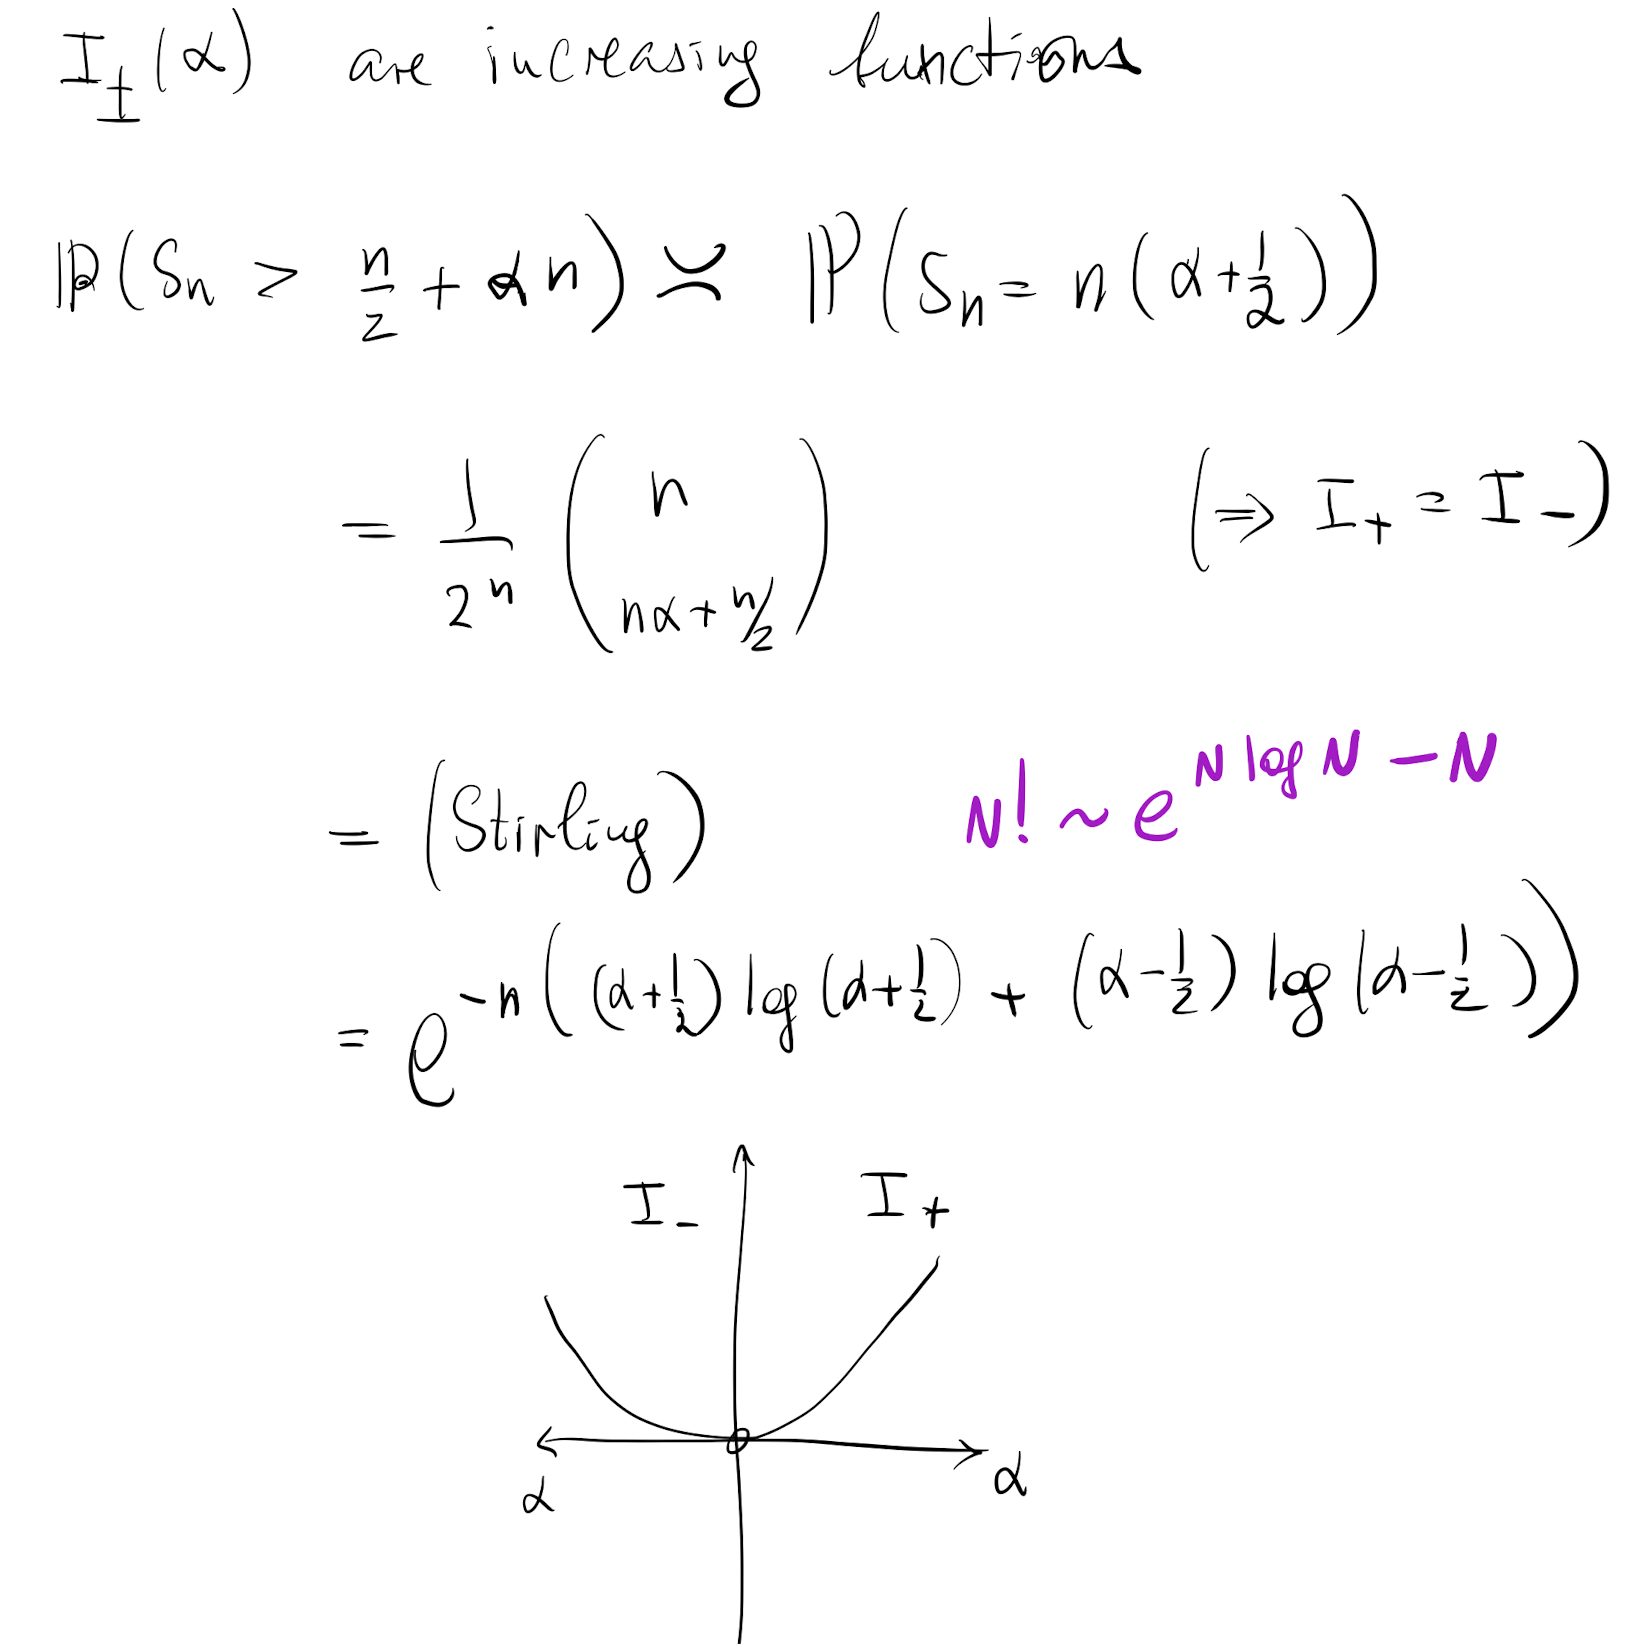 I±(α) are increasing functions
ℙ(Sn > n/2 + αn) ≍ ℙ(Sn = n(α+1/2))
= 1/2^n (n nα+n/2) (⇒ I+ = I-)
= (Stirling) N! ~ e^(N log N - N)
= e^(-n((α+1/2) log(α+1/2) + (α-1/2) log(α-1/2)))
I- I+
α α